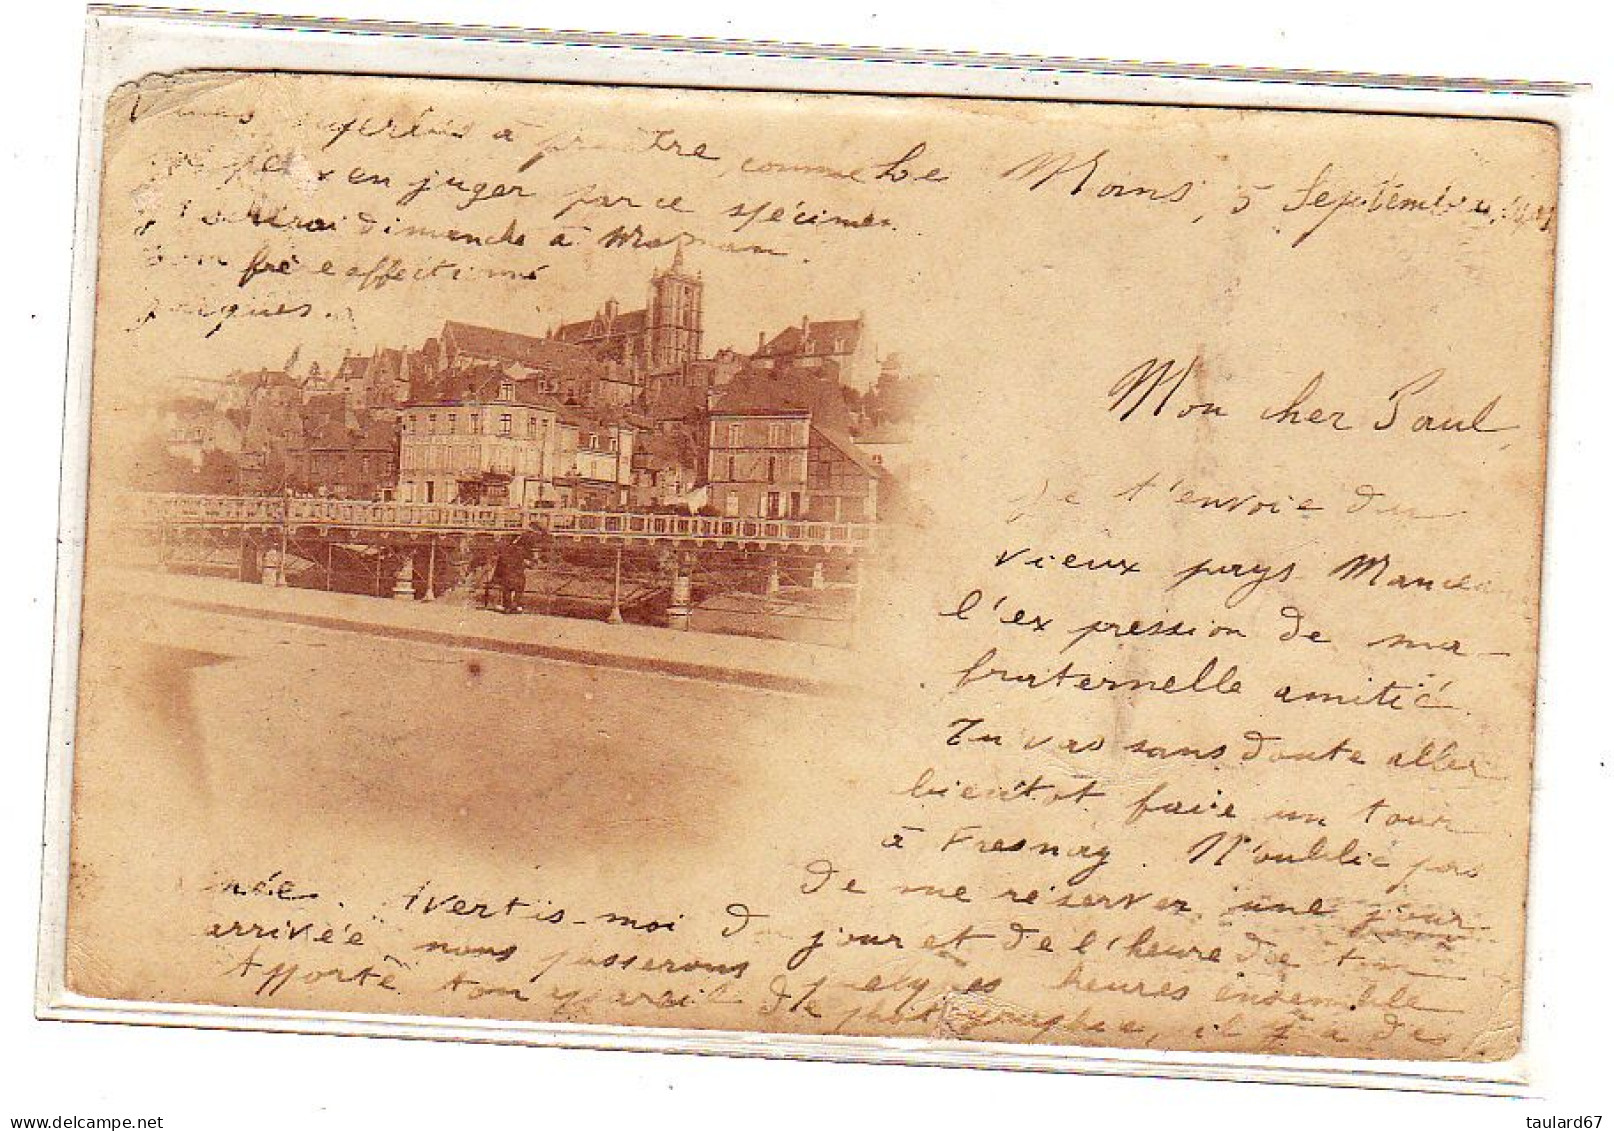 Le Mans, 5 Septembre
Mon cher Paul,
Je t'envoie du
vieux pays Manceau
l'expression de ma
fraternelle amitié.
Tu vas sans doute aller
bientôt faire un tour
à Fresnay. N'oublie pas
de me réserver une jour-
née. Avertis-moi du jour et de l'heure de ton
arrivée nous passerons quelques heures ensemble
Apporte ton appareil de photographie, il y a des
vues à prendre, comme
en juger par ce spécimen.
dimanche à Maman.
Ton frère affectionné
Jacques.
www.delcampe.net
taulard67